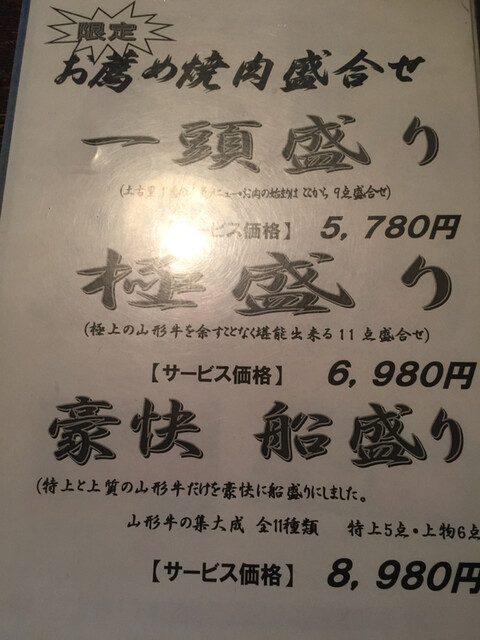 限定
お薦め焼肉盛合せ
一頭盛り
(土古里 メニュー・お肉の始まりは ココから 9点盛合せ)
サービス価格】 5,780円
極盛り
(極上の山形牛を余すことなく堪能出来る11点盛合せ)
【サービス価格】 6,980円
豪快 船盛り
(特上と上質の山形牛だけを豪快に船盛りにしました。
山形牛の集大成 全11種類 特上5点・上物6点
【サービス価格】 8,980円